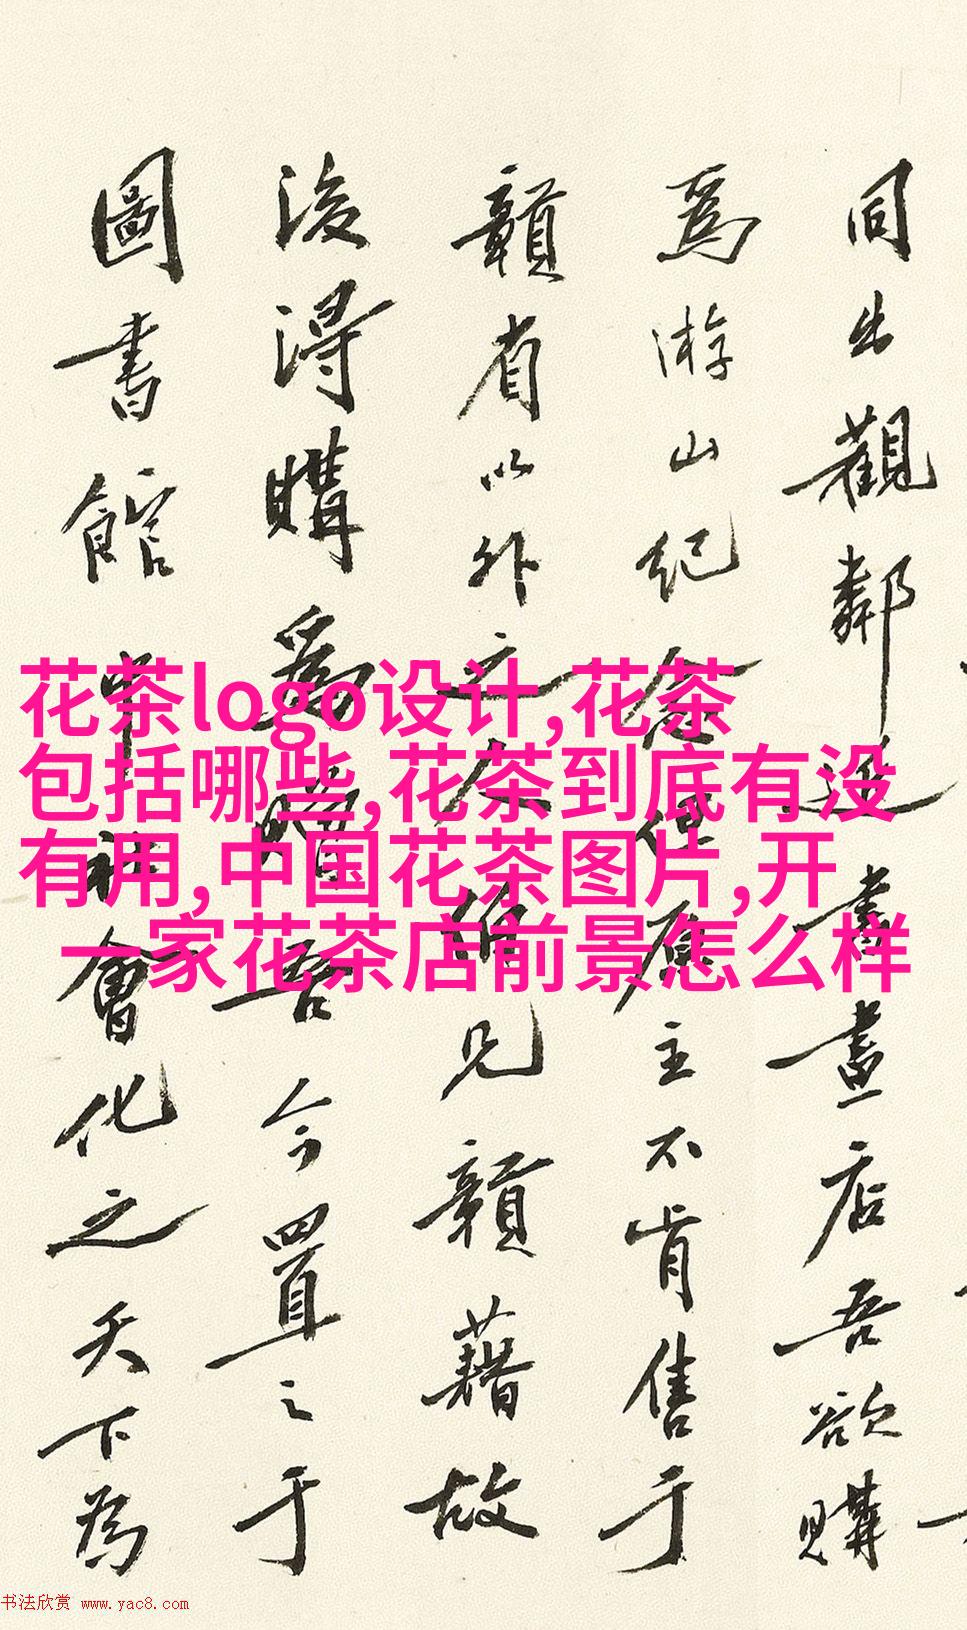 同出觀鄰近書畫店吾欲購
爲游山紀念但主不肯售于
贛省以外之見贛藉故
後得購爲吾今置之于
圖書館中社會化之天下爲
花茶logo设计,花茶
包括哪些,花茶到底有没
有用,中国花茶图片,开
一家花茶店前景怎么样
书法欣赏 www.yac8.com